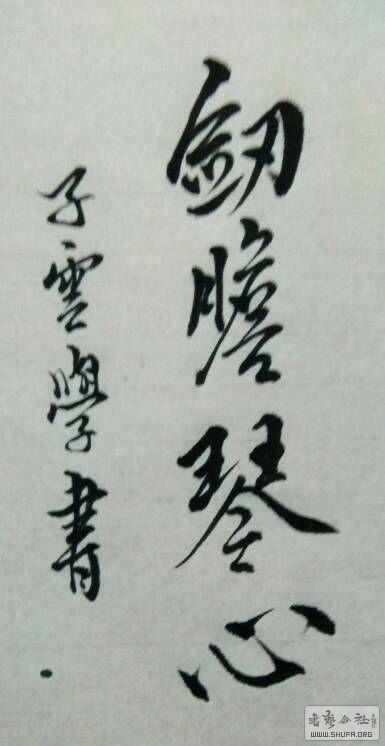 劒膽琴心
子雲學書
書藝公社
WWW.SHUFA.ORG